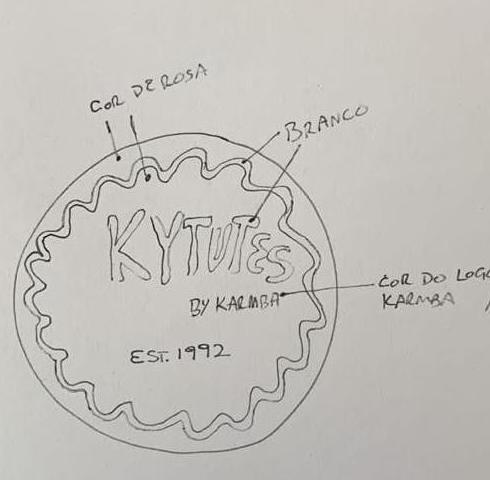 COR DE ROSA
BRANCO
KYTUTES
BY KARMBA
COR DO LOGO
KARMBA
EST. 1992